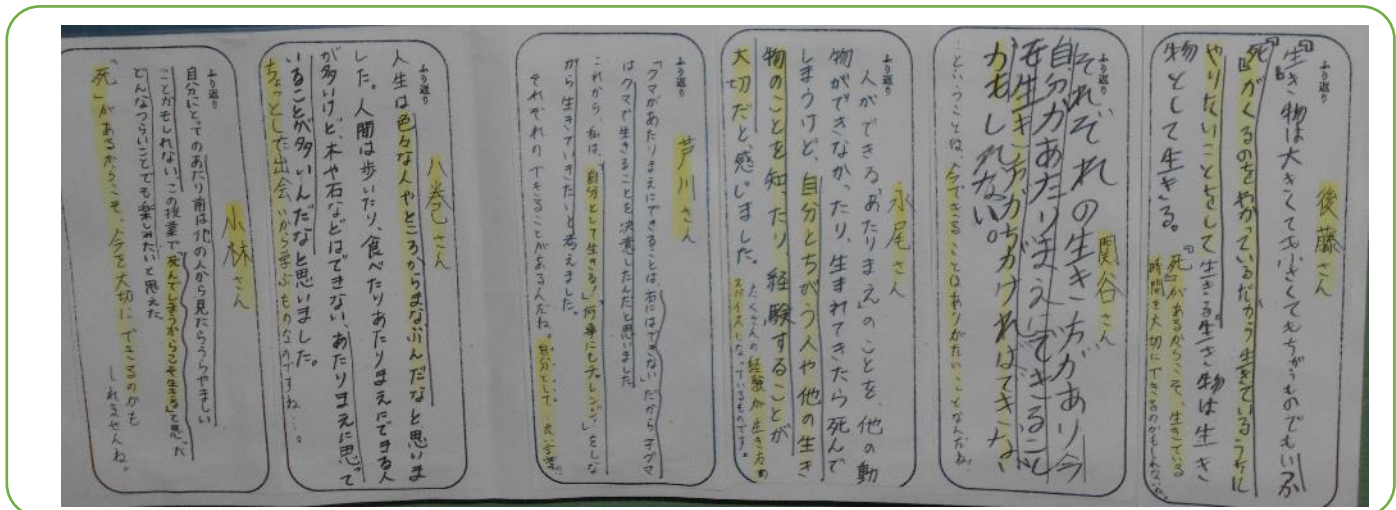 後藤さん
ふり返り
生き物は大きくても小さくてもちがうものでもいつか
『死』がくるのをわかっているだから生きているうちに
やりたいことをして生きる。生き物は生き
物として生きる。
『死』があるからこそ、生きている
時間を大切にできるのかもしれない
関谷さん
ふり返り
それぞれの生き方があり今
自分があたりまえにできること
も生き方がちがければできない
かもしれない。
…ということは、今できることはありがたいことなんだね。
永尾さん
ふり返り
人ができる「あたりまえ」のことを、他の動
物ができなかったり、生まれてきたら死んで
しまうけど、自分とちがう人や他の生き
物のことを知ったり、経験することが
大切だと感じました。
たくさんの経験が生き方の
スパイスになっているものです。
芦川さん
ふり返り
「クマがあたりまえにできることは、石にはできない」だから子グマ
はクマで生きることを決意したんだと思いました
これから、私は、「自分として生きる!」「何事にもチャレンジ!」をしな
がら生きていきたいと考えました。
それぞれのできることがあるんだね。自分として…良い言葉
八巻さん
ふり返り
人生は色々な人やところからまなぶんだなと思いま
した。人間は歩いたり、食べたりあたりまえにできる人
が多いけど、木や石などはできない、あたりまえに思って
いることが多いんだなと思いました。
ちょっとした出会いから学ぶものなのですね…。
小林さん
ふり返り
自分にとってのあたり前は他の人から見たらうらやましい
ことかもしれない。この授業で「死んでしまうからこそ生きる」と思った
どんなつらいことでも楽しみたいと思えた
「死」があるからこそ、今を大切にできるのかも
しれませんね。